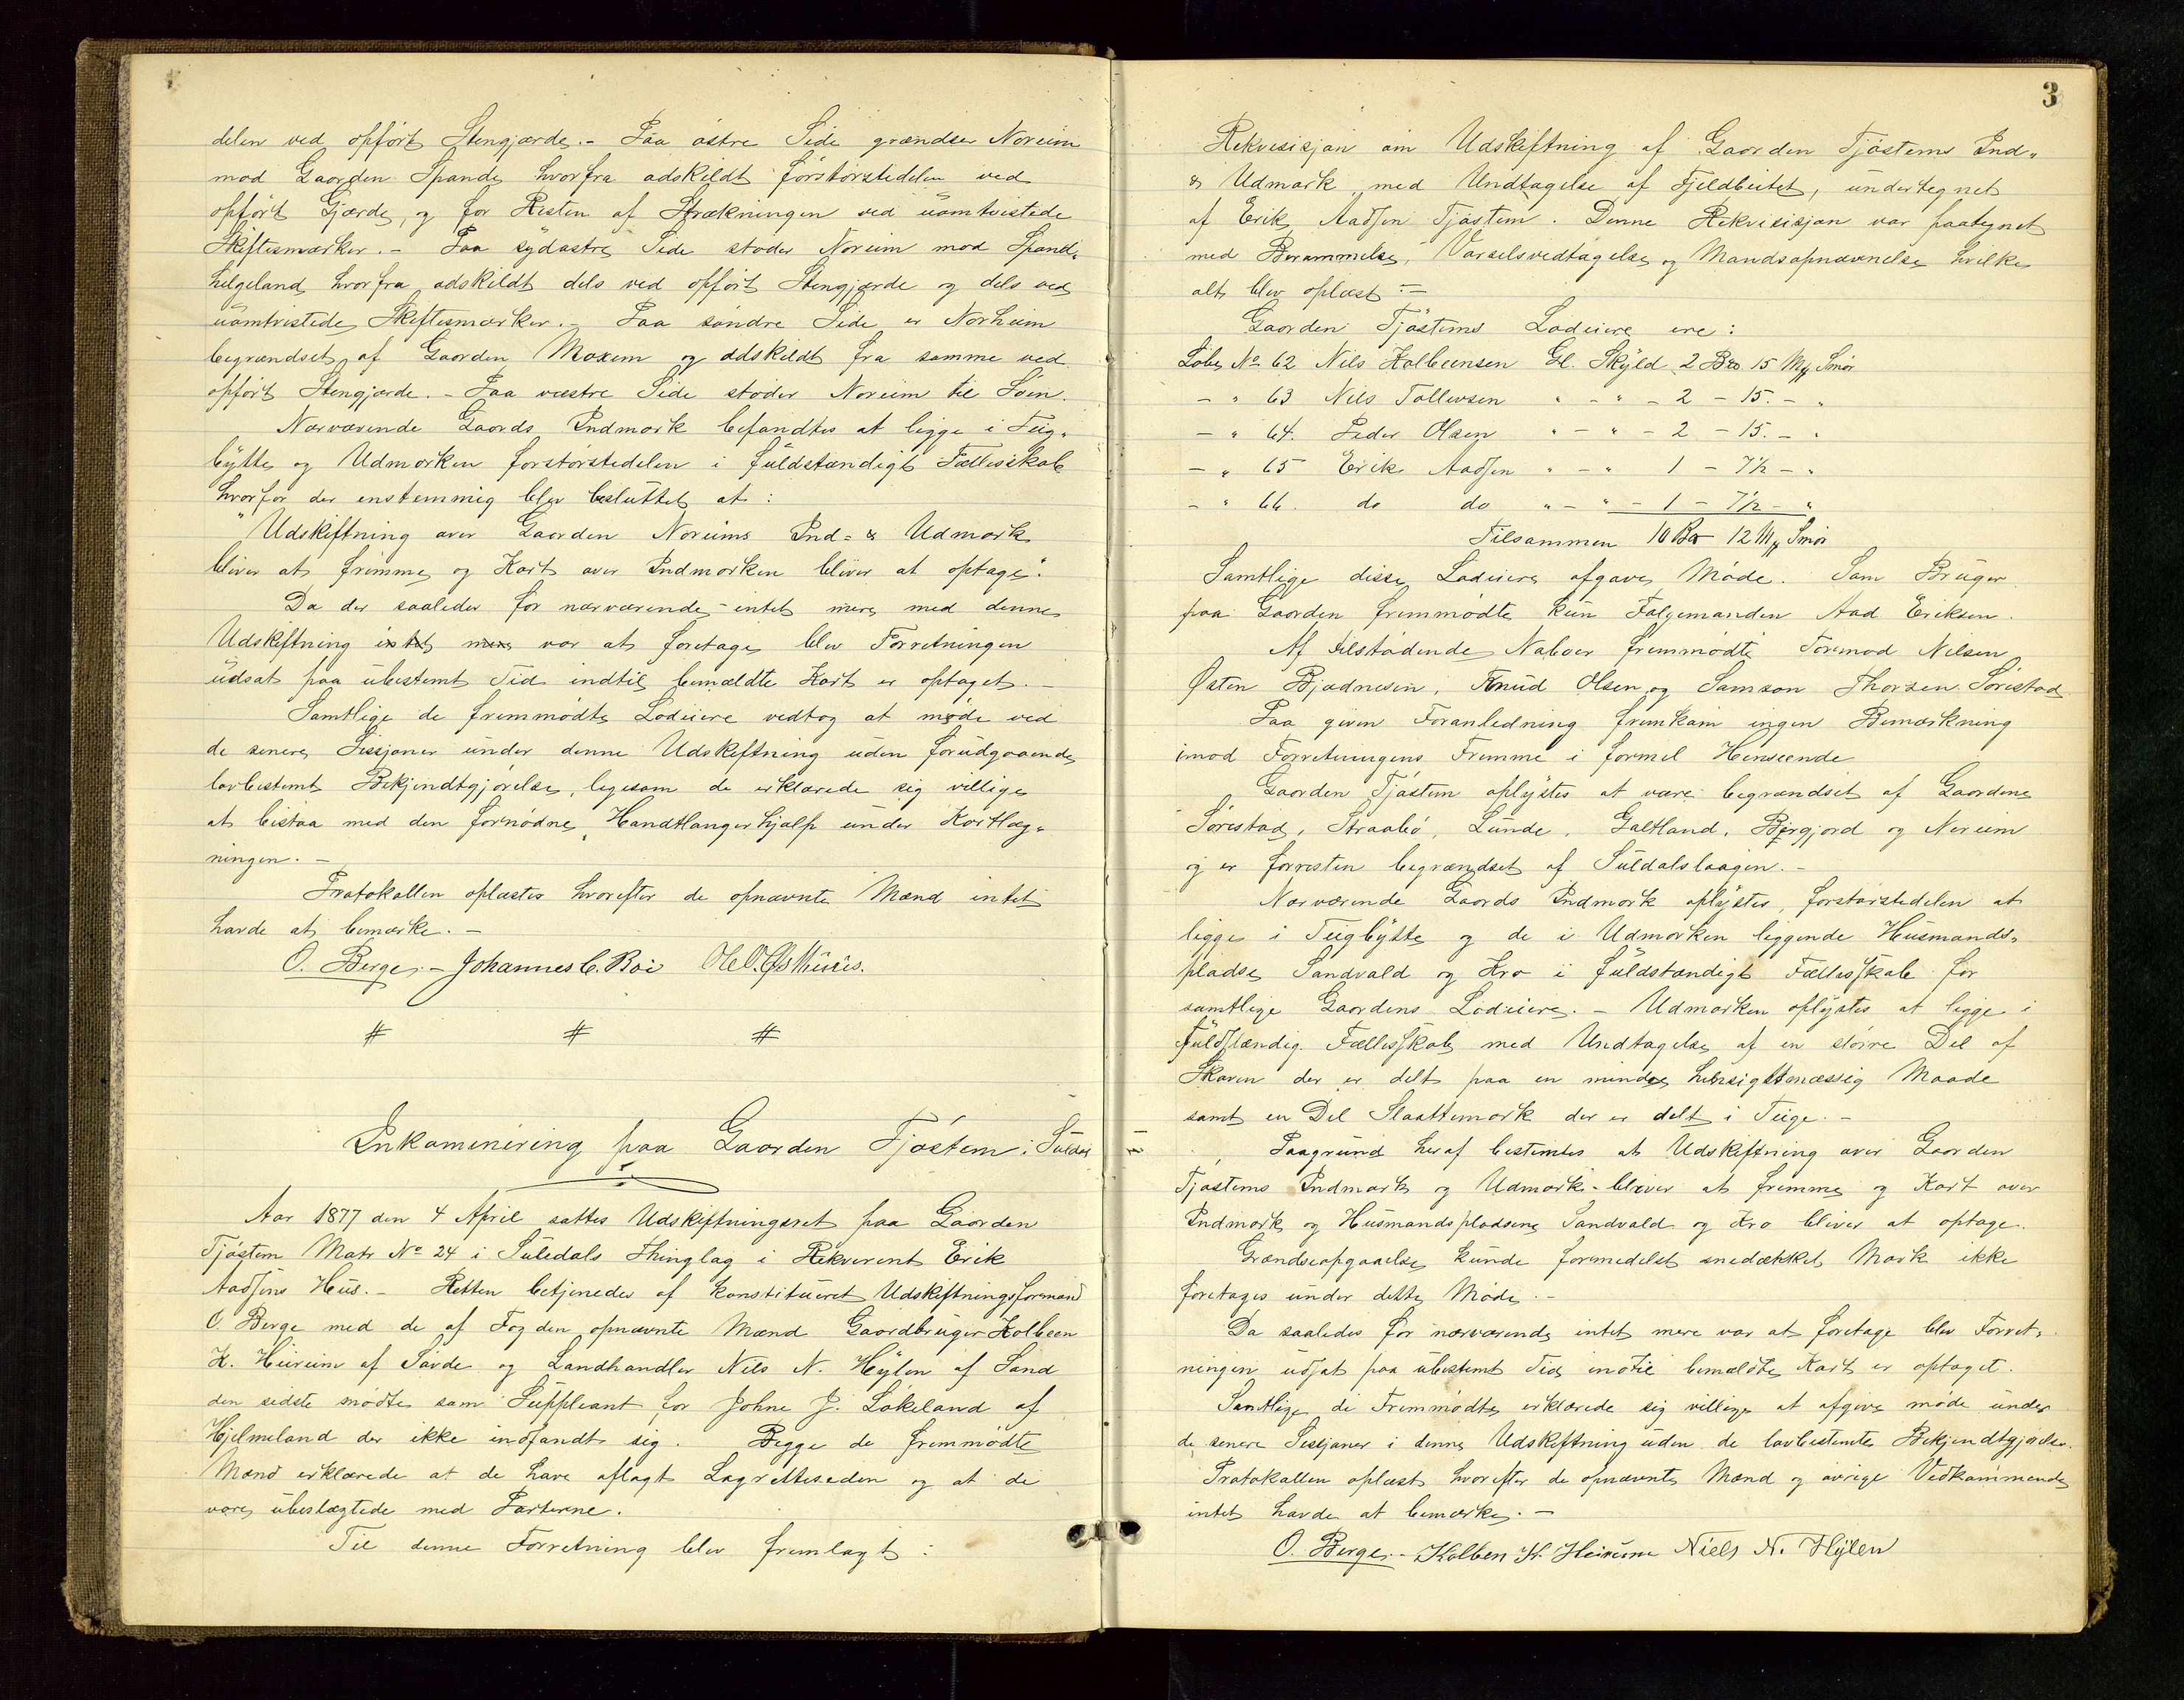 delen ved opført Stengjærde. - Paa østre Side grændser Noreim
mod Gaarden Spande hvorfra adskildt førstørstedelen ved
opført Gjærde, og for Resten af Strækningen ved uomtvistede
Skiftesmærker. - Paa sydøstre Side støder Noreim mod Spand-
helgeland hvorfra adskildt dels ved opført Stengjærde og dels ved
uomtvistede Skiftesmærker. - Paa søndre Side er Norheim
begrændset af Gaarden Moxem og adskildt fra samme ved
opført Stengjærde. - Paa vestre Side støder Noreim til Søen.
Nærværende Gaards Indmark befandtes at ligge i Teig-
bytte og Udmarken forstørstedelen i fuldstændigt Fællesskab
hvorfor der enstemmig blev besluttet at:
"Udskiftning over Gaarden Noreims Ind= & Udmark
bliver at fremme og Kart over Indmarken bliver at optage".
Da der saaledes for nærværende intet mere med denne
Udskiftning intet mere var at foretage blev Forretningen
udsat paa ubestemt Tid indtil bemældte Kart er optaget. -
Samtlige de fremmødte Lodeiere vedtog at møde ved
de senere Sessjoner under denne Udskiftning uden forudgaaende
lovbestemt Bekjendtgjørelse, ligesom de erklærede sig villige
at bistaa med den fornødne Handtlangerhjælp under Kortlæg-
ningen. -
Protokollen oplæstes hvorefter de opnævnte Mænd intet
havde at bemærke. -
O. Berge. - Johannes C. Boe Ole O. Østhuus.
# # #
Inkaminering paa Gaarden Tjøstem i Suldal
Aar 1877 den 4 April sattes Udskiftningsret paa Gaarden
Tjøstem Matr No 24 i Suledals Thinglag i Rekvirent Erik
Aadsens Hus. - Retten betjenedes af konstitueret Udskiftningsformand
O. Berge med de af Fogden opnævnte Mænd Gaardbruger Kolbeen
K. Heireim af Søvde og Landhandler Nils N. Hylen af Sand
den sidste mødte som Suppleant for Johne J. Løkeland af
Hjelmeland der ikke indfandt sig. Begge de fremmødte
Mænd erklærede at de have aflagt Lagretteseden og at de
vare ubeslægtede med Parterne.
Til denne Forretning blev fremlagt:
3
Rekvisisjon om Udskiftning af Gaarden Tjøstems Ind-
& Udmark, med Undtagelse af Fjeldbeitet, undertegnet
af Erik Aadsen Tjøstem. Denne Rekvisisjon var paategnet
med Berammelse, Varselsvedtagelse og Mandsopnævnelse hvilke
alt blev oplæst: -
Gaarden Tjøstems Lodeiere ere:
Løbe No 62 Nils Kolbeensen Gl. Skyld 2 Bro. 15 Mg Smør
- " 63 Nils Tollevsen " - " - 2 - 15. - "
- " 64. Peder Olsen " - " - 2 - 15. - "
- " 65 Erik Aadsen " - " 1 - 7½ - "
- " 66. do do " - " - 1 - 7½ - "
Tilsammen 10 Bro 12 Mg Smør
Samtlige disse Lodeiere afgave Møde. Som Bruger
paa Gaarden fremmødte kun Følgemanden Aad Eriksen.
Af tilstødende Naboer fremmødte Tormod Nilsen
Østen Bjødnesen, Knud Olsen og Samson Thorsen Sørestad
Paa given Foranledning fremkom ingen Bemærkning
imod Forretningens Fremme i formel Henseende
Gaarden Tjøstem oplystes at være begrændset af Gaardene
Sørestad, Straabø, Lunde, Galtland, Bergjord og Noreim
og er forresten begrændset af Suldalslaagen. -
Nærværende Gaards Indmark oplystes, forstørstedelen at
ligge i Teigbytte og de i Udmarken liggende Husmands-
pladse Sandvald og Kro i fuldstændigt Fællesskab for
samtlige Gaardens Lodeiere. - Udmarken oplystes at ligge i
fuldstændig Fællesskab med Undtagelse af en større Del af
Skoven der er delt paa en mindre hensigtsmæssig Maade
samt en Del Slaattemark der er delt i Teige. -
Paagrund heraf bestemtes at Udskiftning over Gaarden
Tjøstems Indmark og Udmark bliver at fremme og Kart over
Indmark og Husmandspladsene Sandvald og Kro bliver at optage.
Grændseopgaaelse kunde formedelst snedækket Mark ikke
foretages under dette Møde. -
Da saaledes for nærværende intet mere var at foretage blev Forret-
ningen udsat paa ubestemt Tid indtil bemældte Kart er optaget.
Samtlige de Fremmødte erklærede sig villige at afgive møde under
de senere Sessjoner i denne Udskiftning uden de lovbestemte Bekjendtgjørelser.
Protokollen oplæst hvorefter de opnævnte Mænd og øvrige Vedkommende
intet havde at bemærke. -
O. Berge. - Kolben K. Heireim Niels N. Hylen